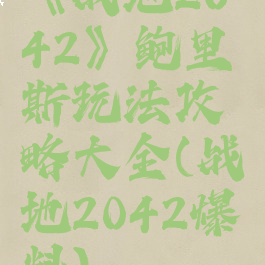 《战地20
42》鲍里
斯玩法攻
略大全(战
地2042爆
料)